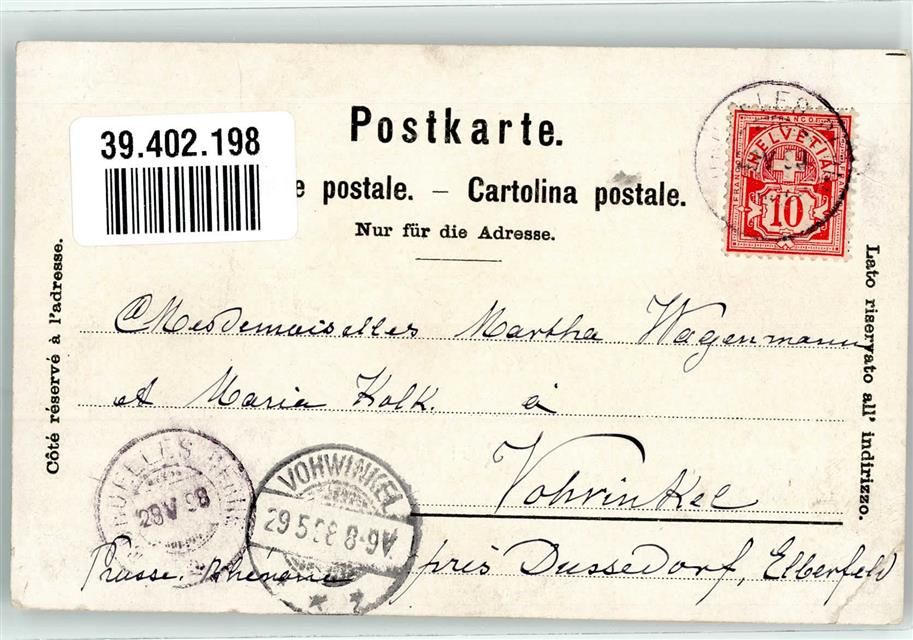 39.402.198
Postkarte.
e postale. – Cartolina postale.
Nur für die Adresse.
Côté réservé à l'adresse.
Lato riservato all' indirizzo.
FRANCO
HELVETIA
10
Mesdemoiselles Martha Wagenmann
et Maria Kolk. à
Vohvinkel
près Dussedorf, Elberfeld
Prusse rhénane
28 V 98
VOHWINKEL
29 5 98 8-9V